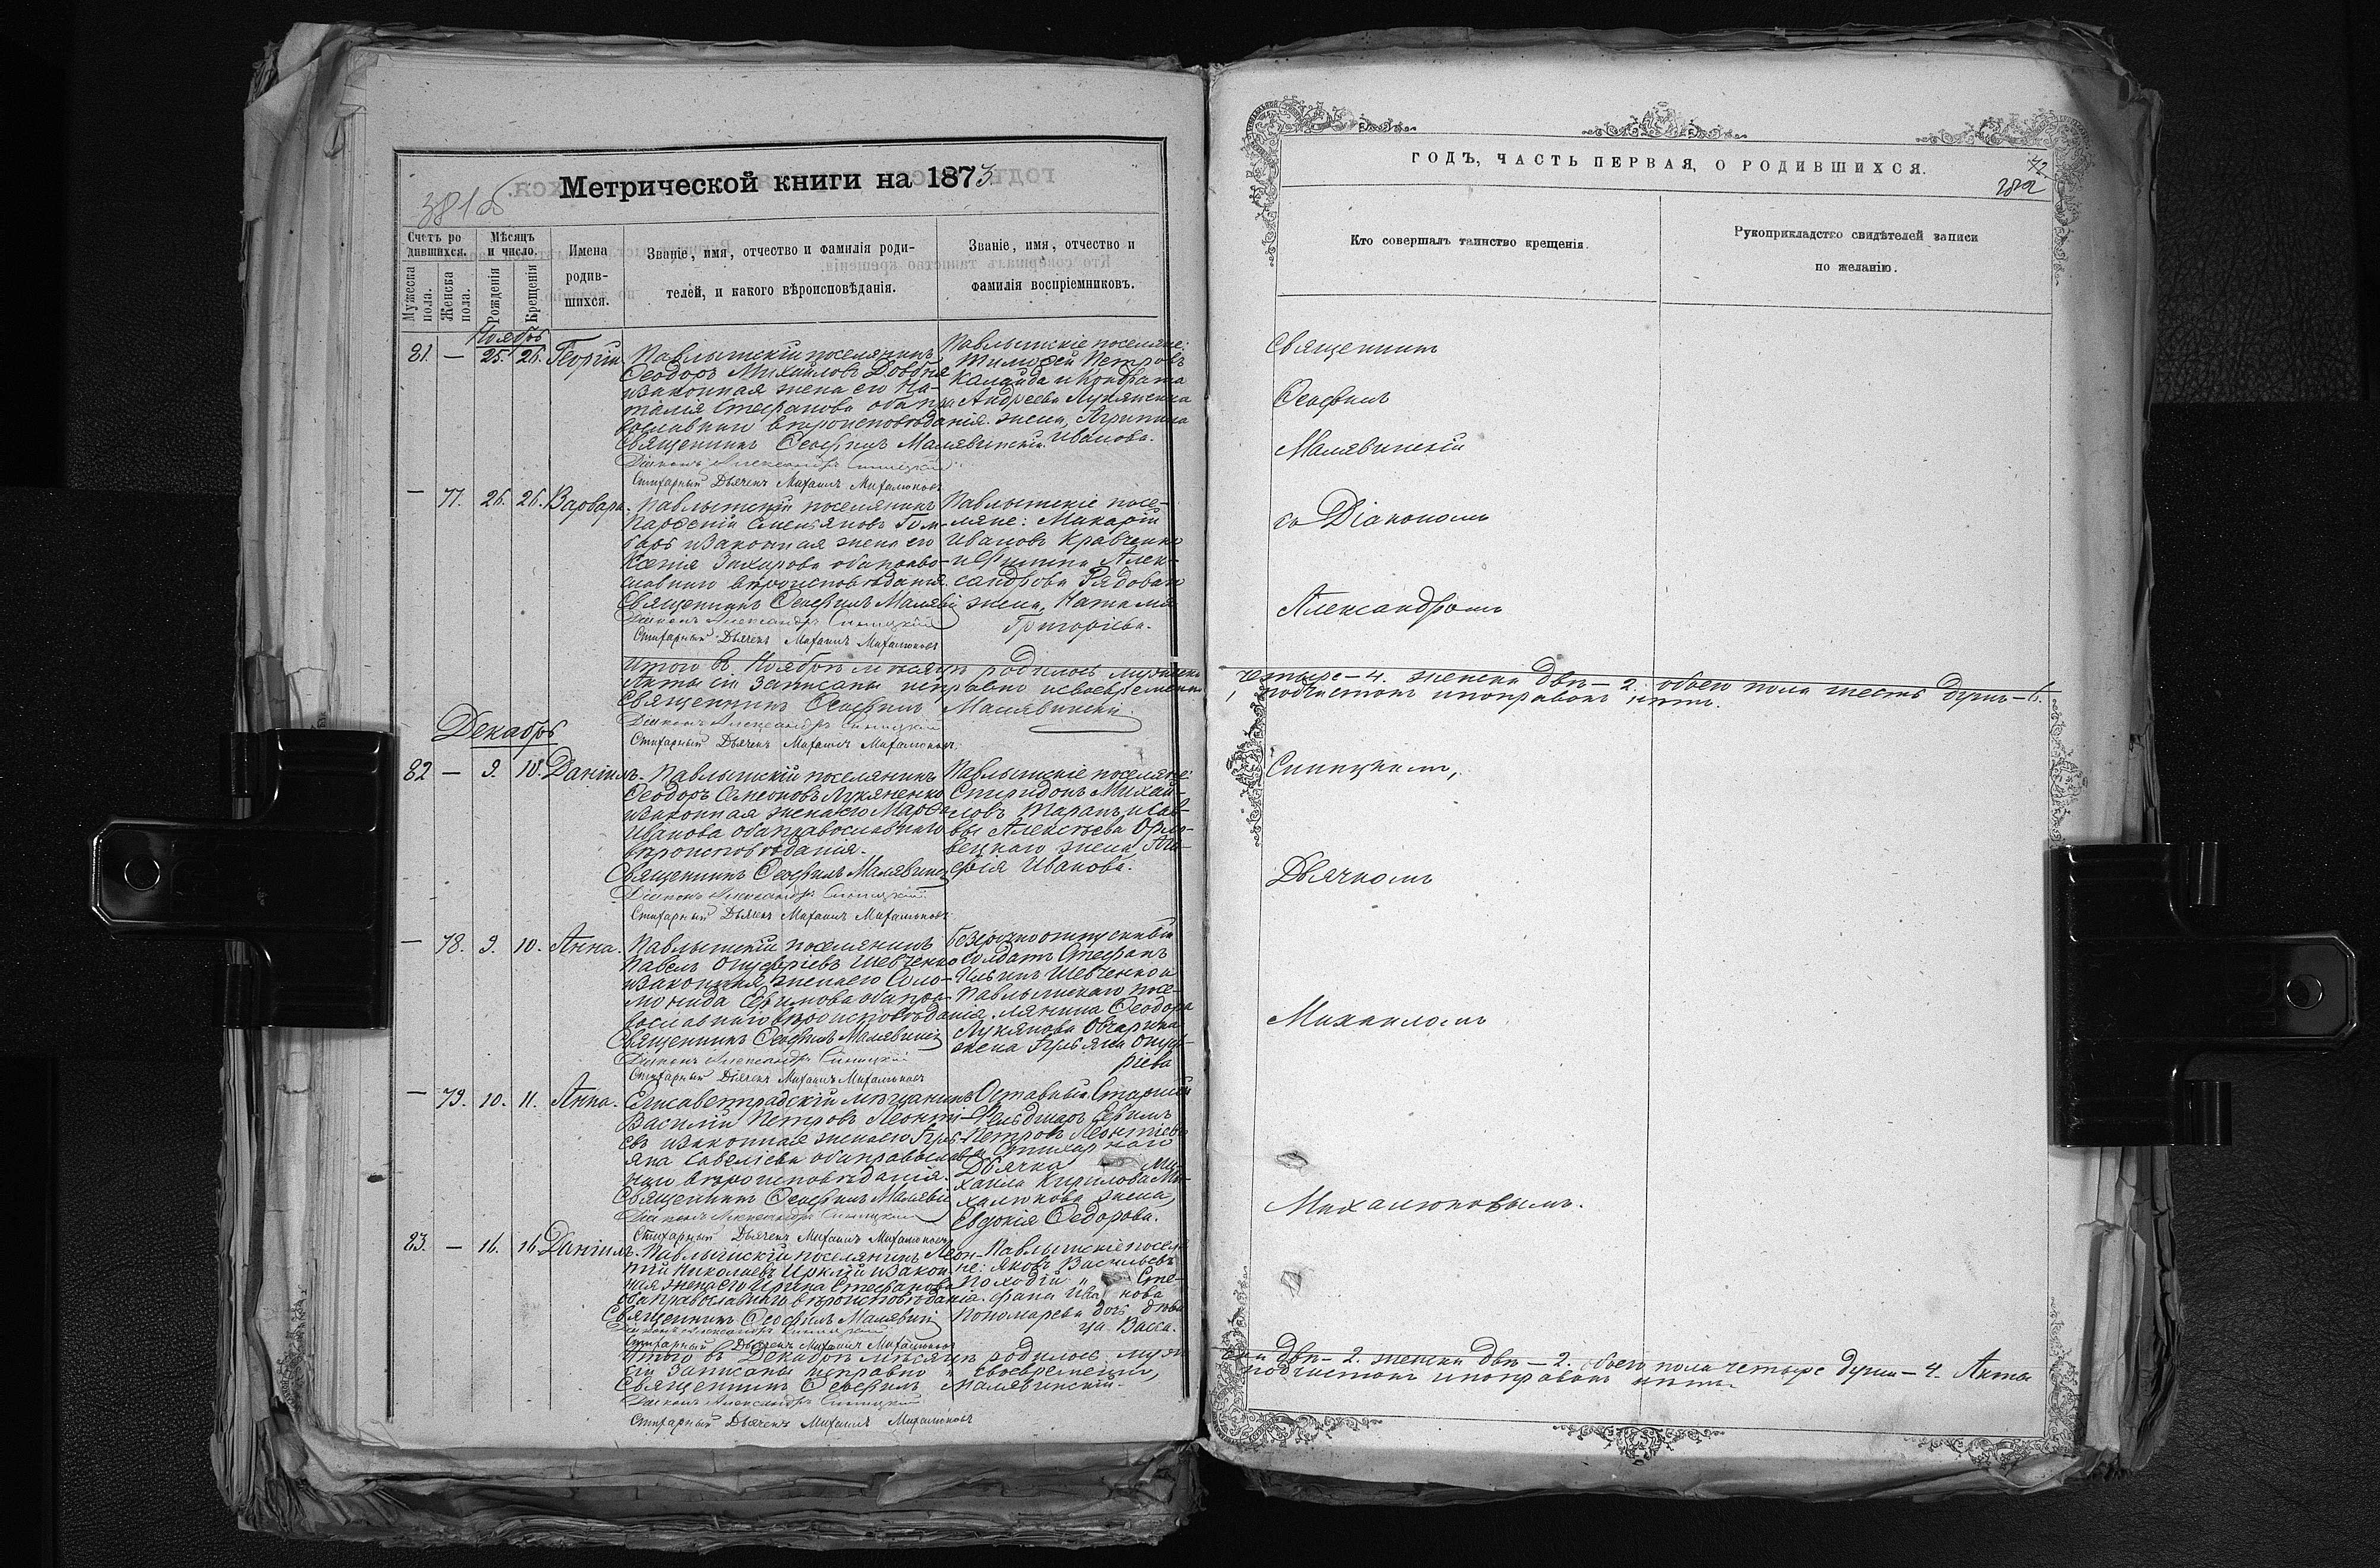 Метрической книги на 1873
381 об
Счетъ ро
дившихся.
Мѣсяцъ
и число.
Имена
родив-
шихся.
Званіе, имя, отчество и фамилія роди-
телей, и какого вѣроисповѣданія.
Званіе, имя, отчество и
фамилія воспріемниковъ.
Мужеска
пола.
Женска
пола.
Рожденія
Крещенія
Ноябрь
81. — 25. 26. Георгій
Павлышскій поселянинъ
Ѳеодоръ Михайловъ Довбня
и законная жена его На-
талія Стефанова оба пра-
вославнаго вѣроисповѣданія.
Священникъ Ѳеофилъ Малявинскій
Діаконъ Александръ Синицкій
Стихарный Дьячекъ Михаилъ Михалюковъ
Павлышскіе поселяне:
Тимоѳей Петровъ
Калайда и Кондрата
Андреева Лукяненка
жена, Агрипина
Иванова.
— 77. 26. 26. Варвара.
Павлышскій поселянинъ
Парѳеній
и законная жена его
Ксенія Захарова оба право-
славнаго вѣроисповѣданія.
Священникъ Ѳеофилъ Маляви
Діаконъ Александръ Синицкій
Стихарный Дьячекъ Михаилъ Михалюковъ
Павлышскіе посе-
ляне: Макарій
Ивановъ Кравченко
и Филипа Алек-
сандрова Рядова
жена, Наталія
Григоріева.
Итого въ Ноябрѣ мѣсяцѣ родилось мужеска
Акты сіи записаны исправно и своевременно
Священникъ Ѳеофилъ Малявинскій
Діаконъ Александръ Синицкій
Стихарный Дьячекъ Михаилъ Михалюковъ.
Декабрь
82 — 9. 10. Даніилъ.
Павлышскій поселянинъ
Ѳеодоръ Симеоновъ Лукяненко
и законная жена его Марѳа
Иванова оба православнаго
вѣроисповѣданія.
Священникъ Ѳеофилъ Малявинс
Діаконъ Александръ Синицкій
Стихарный Дьячекъ Михаилъ Михалюковъ
Павлышскіе поселяне:
Спиридонъ Михай-
ловъ Таранъ и Сав-
вы Алексѣева Орло-
вецкаго жена
Иванова.
— 78. 9. 10. Анна.
Павлышскій поселянинъ
Павелъ Онуфріевъ Шевченко
и законная жена его Соло-
монида Ефимова оба пра-
вославнаго вѣроисповѣданія.
Священникъ Ѳеофилъ Малявинс
Діаконъ Александръ Синицкій
Стихарный Дьячекъ Михаилъ Михалюковъ
Безсрочноотпускный
солдатъ Стефанъ
Шевченко и
Павлышскаго посе-
лянина Ѳеодора
Лукянова Овчаренка
жена Иуліянія Онуф-
ріева
— 79. 10. 11. Анна.
Елисаветградскій мѣщанинъ
Василій Петровъ Леонті-
евъ и законная жена его Іулі-
яна Савеліева оба православ-
наго вѣроисповѣданія.
Священникъ Ѳеофилъ Маляви
Діаконъ Александръ Синицкій
Стихарный Дьячекъ Михаилъ Михалюковъ
Отставный Старшій
Фельдшеръ Ефимъ
Петровъ Леонтіевъ
и Стихарнаго
Дьячка Ми-
хаила Кирилова Ми-
халюкова жена,
Евдокія Ѳедорова.
83. — 16. 16. Даніилъ.
Павлышскій поселянинъ Леон-
тій Николаевъ Ирклій и закон-
ная жена его Ирина Стефанова
оба православнаго вѣроисповѣданія.
Священникъ Ѳеофилъ Маляви
Діаконъ Александръ Синицкій
Стихарный Дьячекъ Михаилъ Михалюковъ
Павлышскіе поселя-
не: Яковъ Васильевъ
Походій и Сте-
фана Иванова
Пономарева дочь дѣви-
ца Васса.
Итого въ Декабрѣ мѣсяцѣ родилось муже
сіи записаны исправно и своевременно,
Священникъ Ѳеофилъ Малявинскій.
Діаконъ Александръ Синицкій
Стихарный Дьячекъ Михаилъ Михалюковъ
ГОДЪ, ЧАСТЬ ПЕРВАЯ, О РОДИВШИХСЯ.
72
382
Кто совершалъ таинство крещенія.
Рукоприкладство свидѣтелей записи
по желанію.
Священникъ
Ѳеофилъ
Малявинскій
съ Діакономъ
Александромъ
четыре — 4. женска двѣ — 2. обоего пола шесть душъ — 6.
подчистокъ и поправокъ нѣтъ.
Синицкимъ,
Дьячкомъ
Михаиломъ
Михалюковымъ.
двѣ — 2. женска двѣ — 2. обоего пола четыре души — 4. Акты
подчистокъ и поправокъ нѣтъ